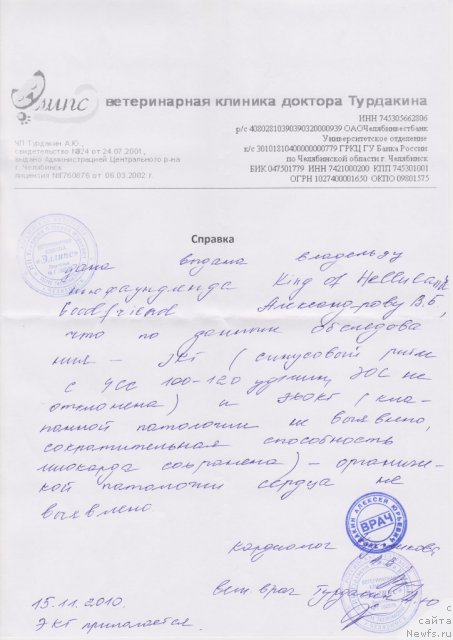 Эллипс
ветеринарная клиника доктора Турдакина
ИНН 745305662806
р/с 40802810390390320000939 ОАОЧелябинвестбанк
Университетское отделение
к/с 30101810400000000779 ГРКЦ ГУ Банка России
по Челябинской области г. Челябинск
БИК 047501779 ИНН 7421000200 КПП 745301001
ОГРН 1027400001650 ОКПО 09801575
ЧП Турдакин А.Ю.,
свидетельство №24 от 24.07.2001,
выдано Администрацией Центрального р-на
г. Челябинск
лицензия №Г760876 от 06.03.2002 г.
Справка
дана выдана владельцу
ньюфаундленда King of Helluland
Goodfriend Александрову В.Б,
что по данным обследова
ния – ЭКГ (синусовый ритм
с ЧСС 100-120 уд/мин, ЭОС не
отклонена) и ЭХОКГ (кла-
панной патологии не выявлено,
сократительная способность
миокарда сохранена) – органиче-
кой патологии сердца не
выявлено
Кардиолог
вет врач Турдакин А Ю
15.11.2010.
ЭКГ прилагается.
ВРАЧ
с
сайта
Newfs.ru